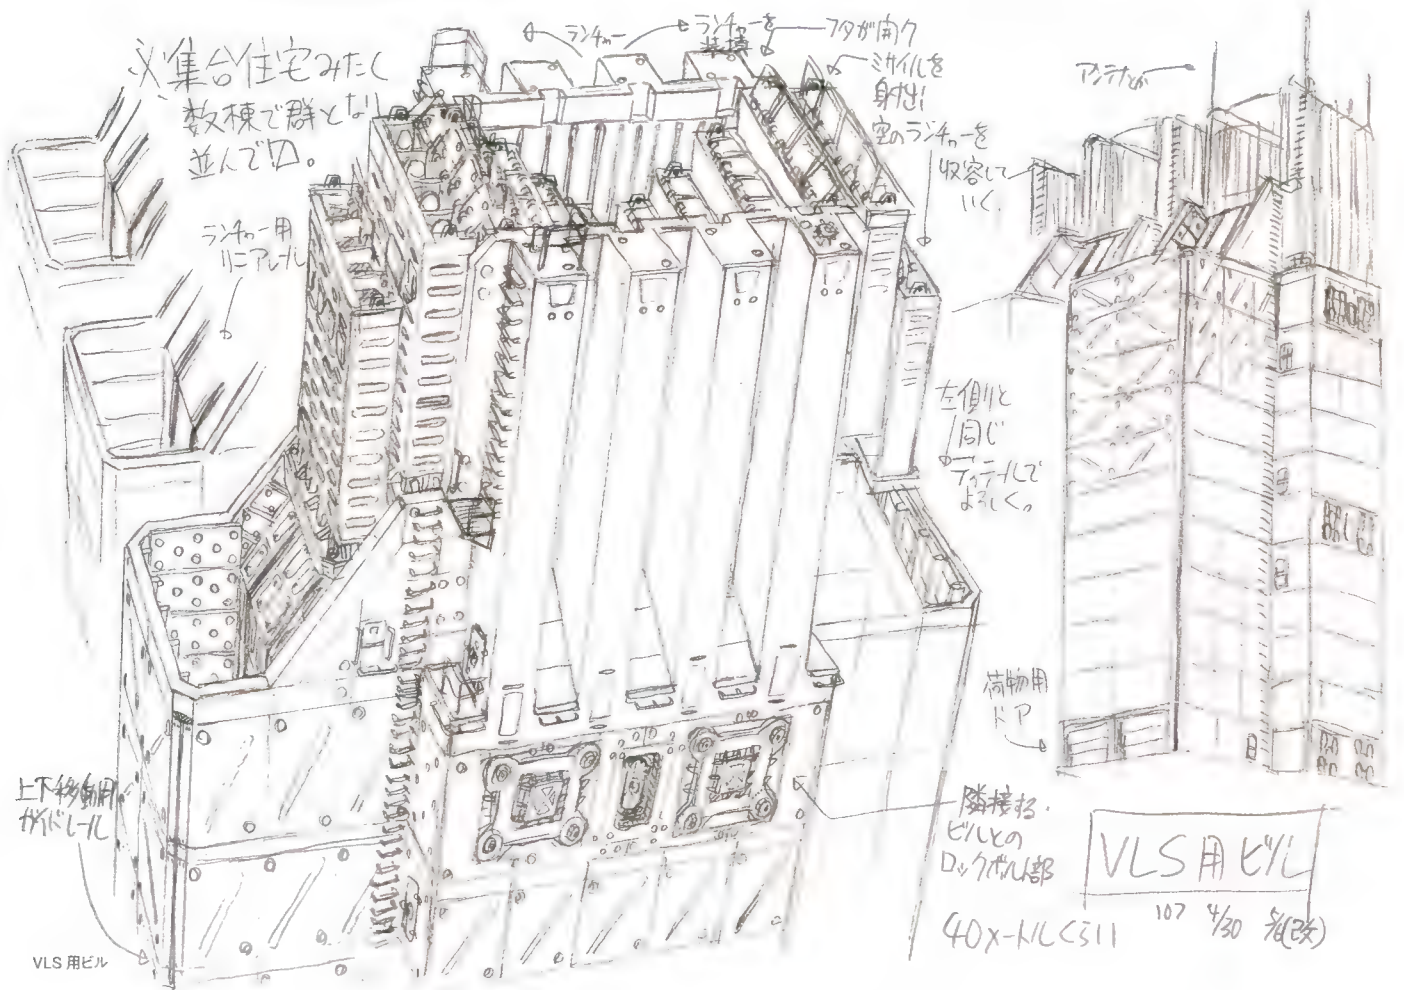 ※集合住宅みたく
数棟で群とな
並んで
ランチャー
ランチャーを
装填
フタが開ク
ミサイルを
射出!
空のランチャーを
収容して
いく.
アンテナとか
ランチャー用
リニアレール
左側と
同じ
ディテールで
よろしく。
荷物用
ドア
上下移動用
ガイドレール
隣接する
ビルとの
ロックボルト部
40メートルくらい
VLS用ビル
107 4/30
VLS用ビル